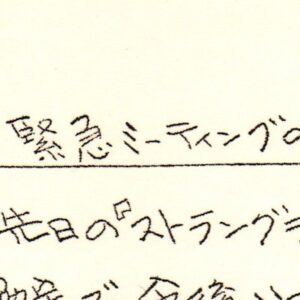 緊急ミーティングの
先日の『ストラングラ
で今後